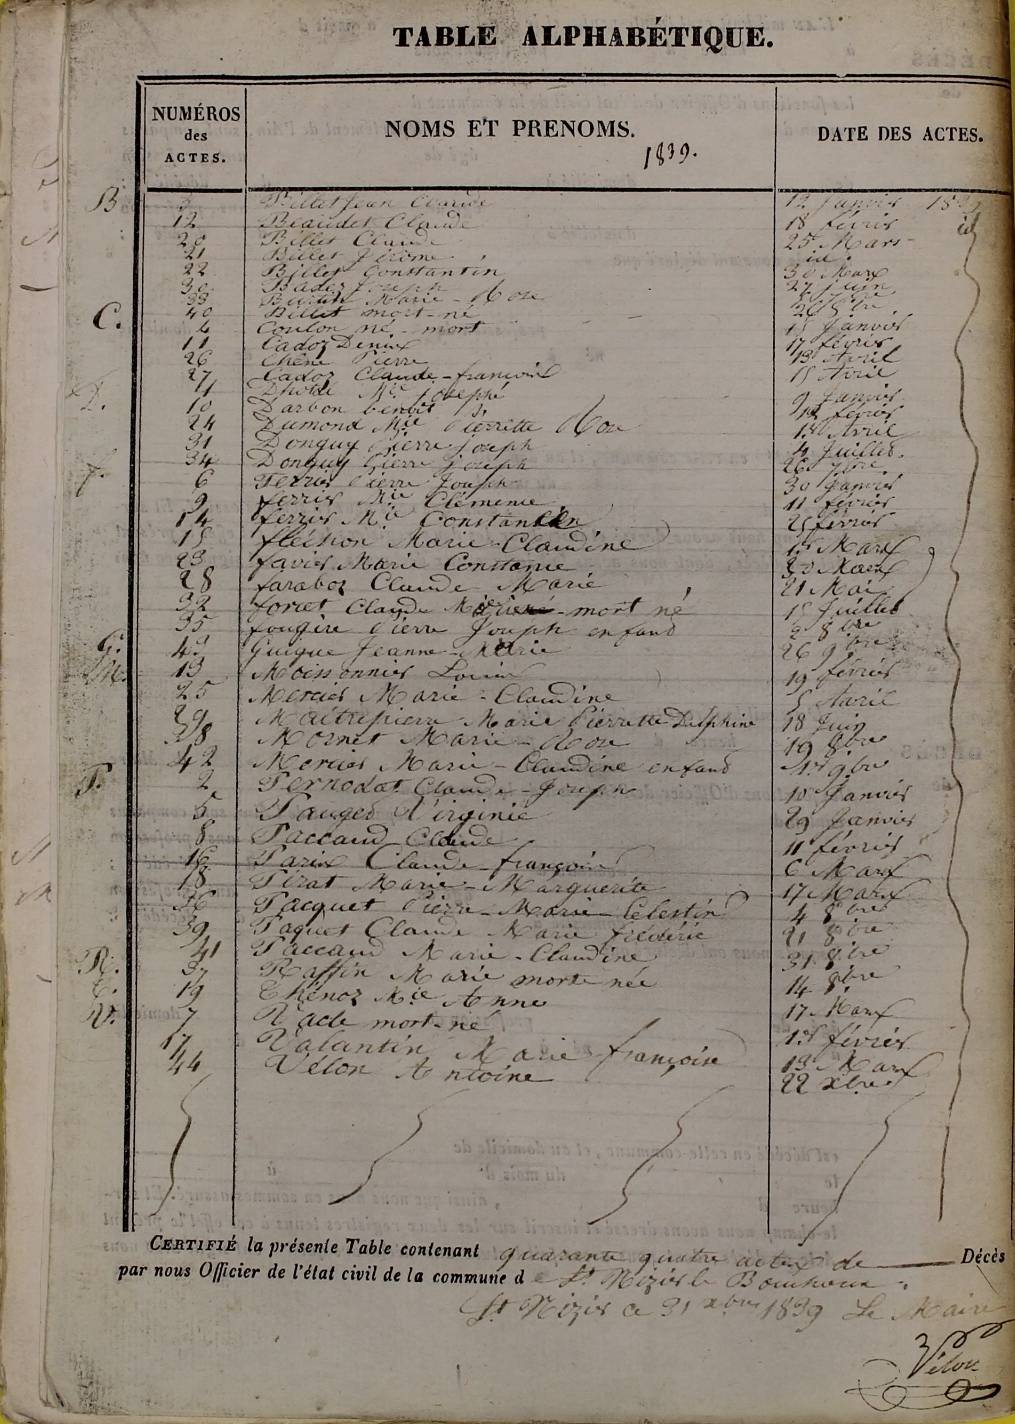 TABLE ALPHABÉTIQUE.
NUMÉROS des ACTES. NOMS ET PRENOMS. 1839. DATE DES ACTES.
B 3 Billet Jean Claude 12 Janvier 1839
12 Beaudet Claude 18 févrir id
20 Billet Claude 25 Mars
21 Billet Jérome id.
22 Billet Constantin 30 Marx
30 Badez Joseph 27 juin
33 Marie - Rose
40 Billet mort-né
C. 4 Coulon né - mort 15 Janvir
11 Cadoz Denise 17 févrir
26 Chêne Pierre 13 Avril
27 Cadoz Claude - françois 15 Avril
D. 4 Mie josephe 9 Janvir
10 Darbon benoit févrir
24 Dumond Mie Pierrette Rose Avril
31 Donguy Pierre joseph 4 Juillet.
34 Donguy Pierre joseph 26 7bre
f. 6 ferris Pierre Joseph 30 Janvir
9 ferris Mie Clémence 11 févrir
14 ferris Mie Constantin févrir
15 Marie - Claudine Marx
23 favier Marie Constance 20 Marx
28 faraboz Claude Marie 21 Mai
32 foret Claude mort né 15 Juillet
35 fougère Pierre Joseph enfand 2 8bre
G. 43 Guigue Jeanne - Marie 26 9bre
M. 13 Moissonnier Louise 19 févrir
25 Mercier Marie - Claudine 5 Avril
29 Maîtrepierre Marie Pierrette Delphine 18 Juin
38 Mornet Marie - Rose 19 8bre
42 Mercier Marie - Claudine enfand 1er 9bre
P. 2 Pernodat Claude - Joseph 10 Janvir
5 Pauget Virginie 29 Janvir
8 Paccaud Claude 11 févrir
16 Parix Claude françois 6 Marx
18 Pirat Marie - Marguerite 17 Marx
36 Pacquet Pierre - Marie - Célestin 4 8bre
39 Paquet Claude Marie frédéric 21 8bre
41 Paccaud Marie - Claudine 31 8bre
R. 37 Raffin Marie morte née 14 8bre
T. 19 Thénoz Mie Anne 17 Marx
V. 7 Vacle mort-né 1er févrir
17 Valantin Marie françoise 13 Marx
44 Vélon Antoine 22 xbre
CERTIFIÉ la présente Table contenant quarante quatre actes de Décès
par nous Officier de l'état civil de la commune de St Nizier le Bouchoux.
St Nizier ce 31 xbre 1839 Le Maire
Vélon